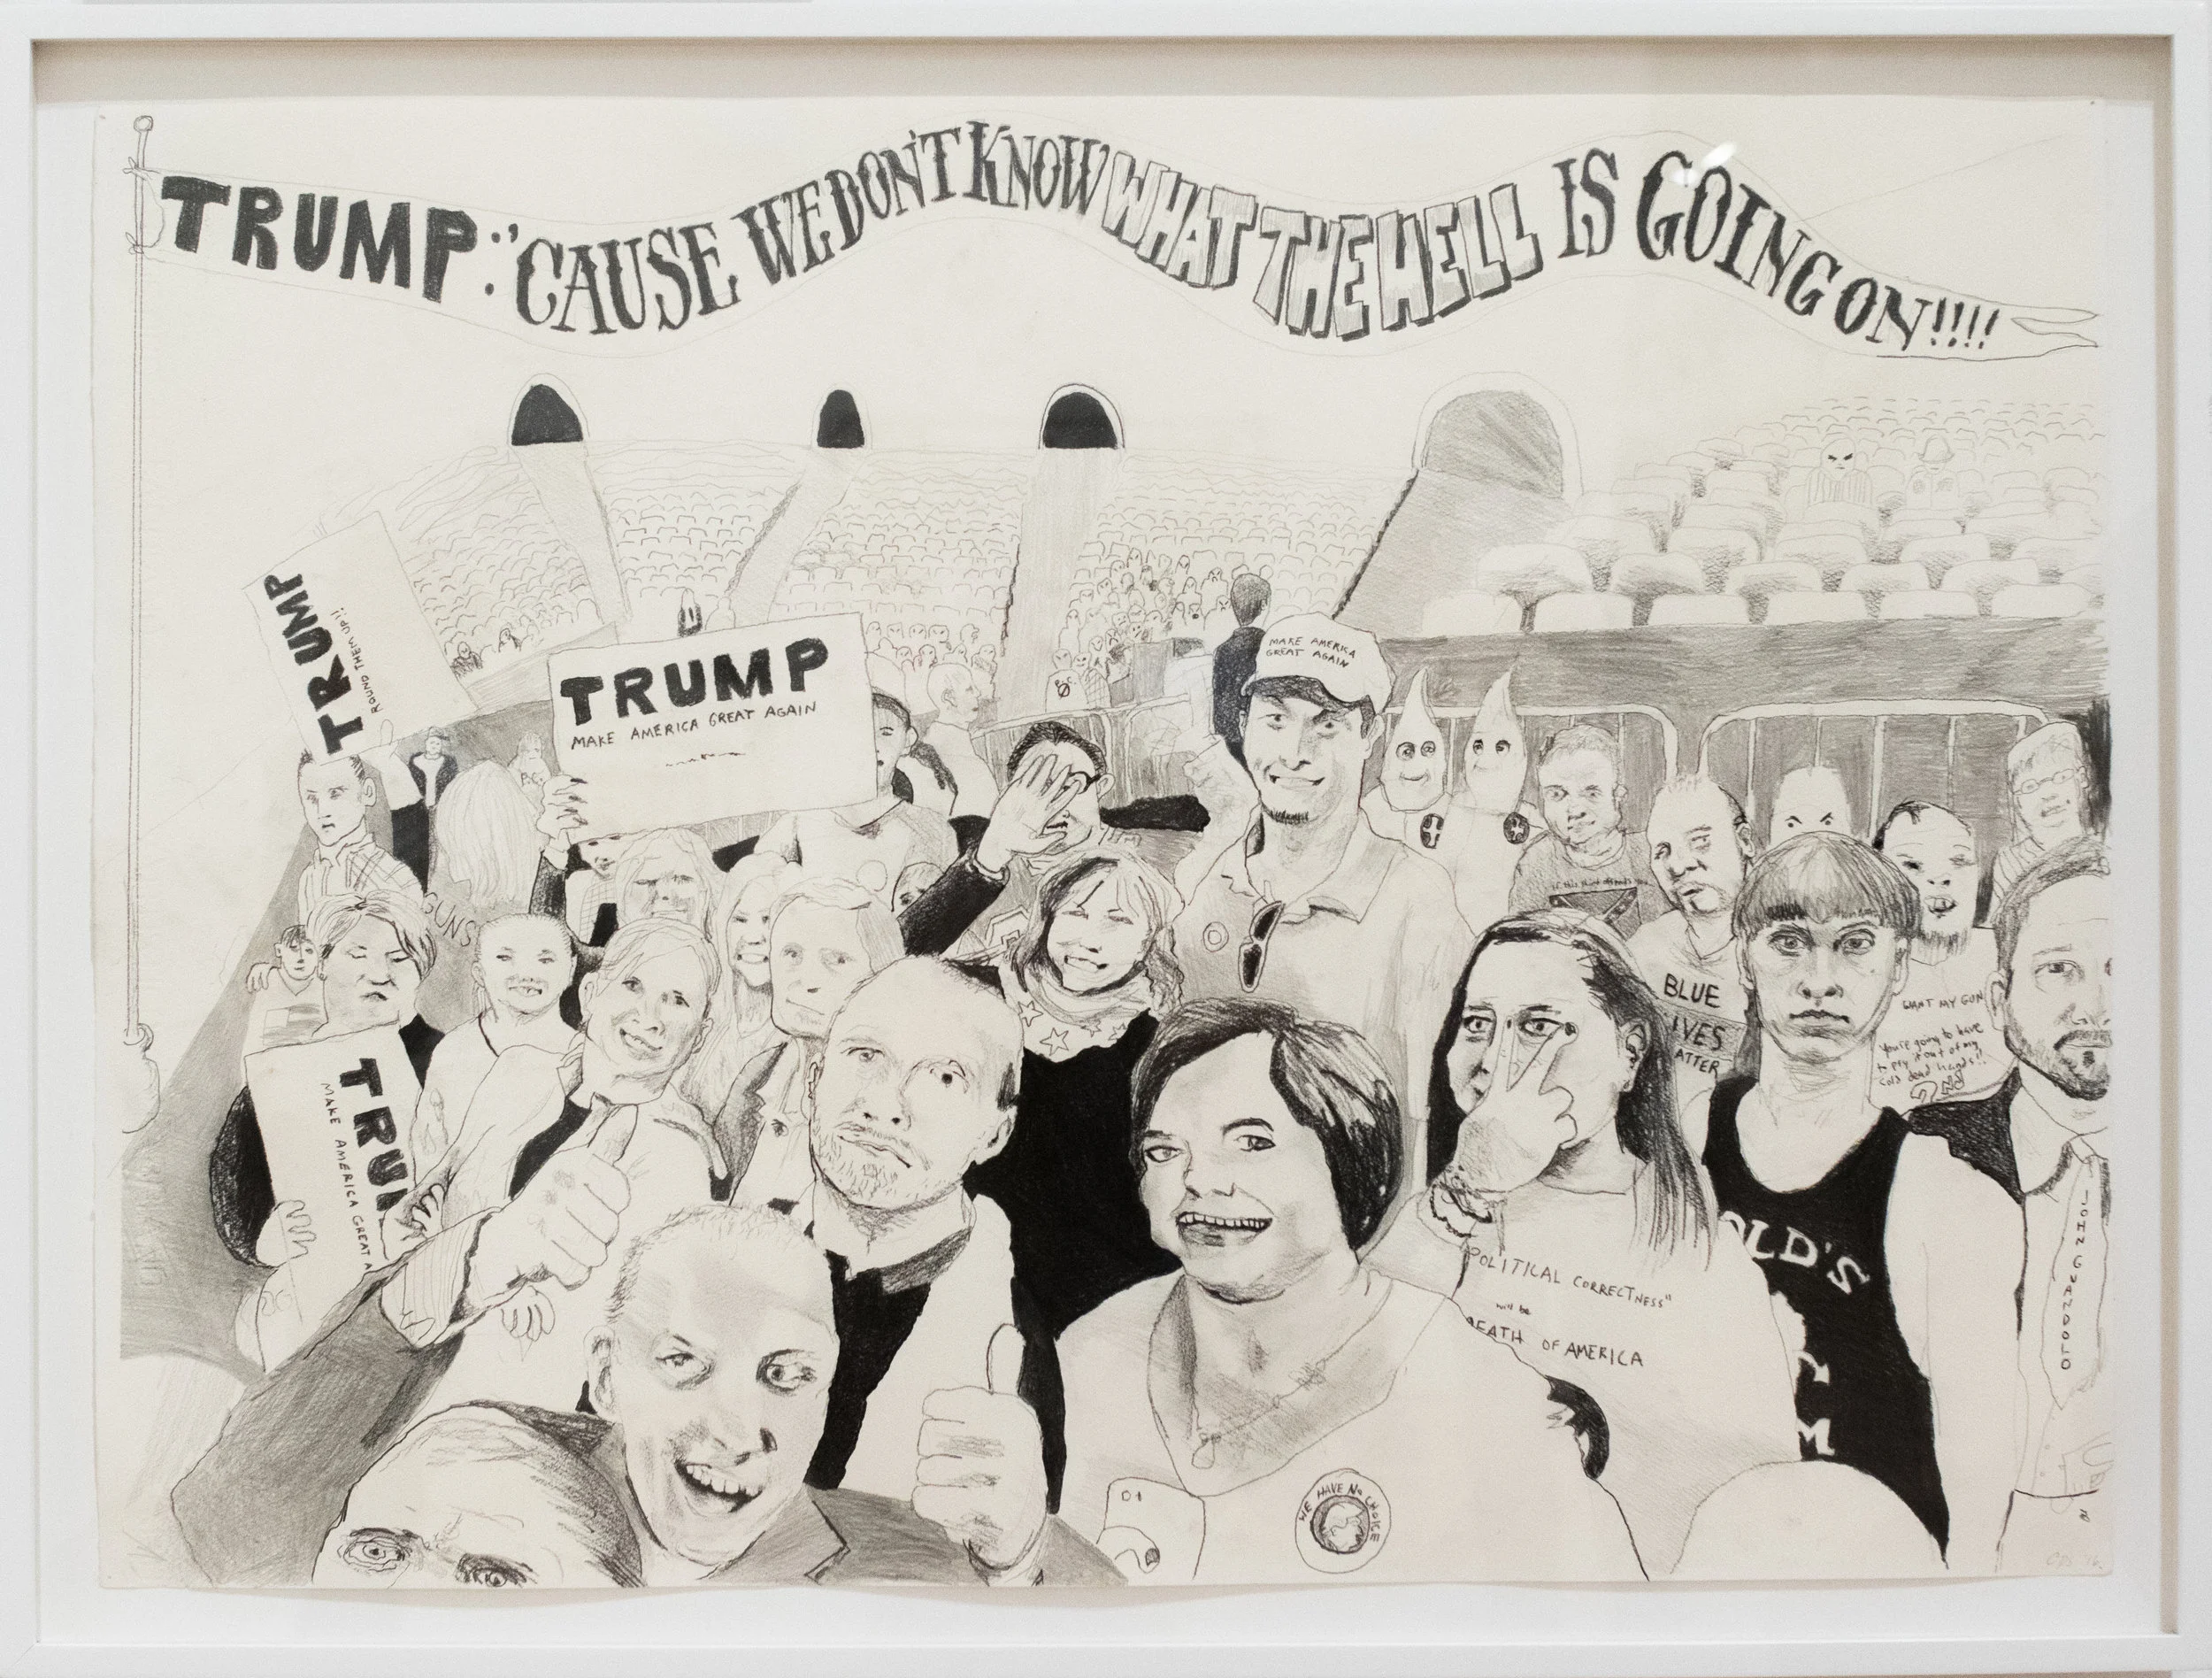 TRUMP: "'CAUSE WE DON'T KNOW WHAT THE HELL IS GOING ON!!!!
TRUMP
ROUND THEM UP!!
TRUMP
MAKE AMERICA GREAT AGAIN
MAKE AMERICA
GREAT AGAIN
B.C.
GUNS
BLUE
IVES
ATTER
WANT MY GUN
You're going to have
to pry it out of my
cold dead hands!!
TRU
MAKE AMERICA GREAT A
"POLITICAL CORRECTNESS"
will be
DEATH OF AMERICA
OLD'S
M
JOHN GUANDOLO
WE HAVE NO CHOICE